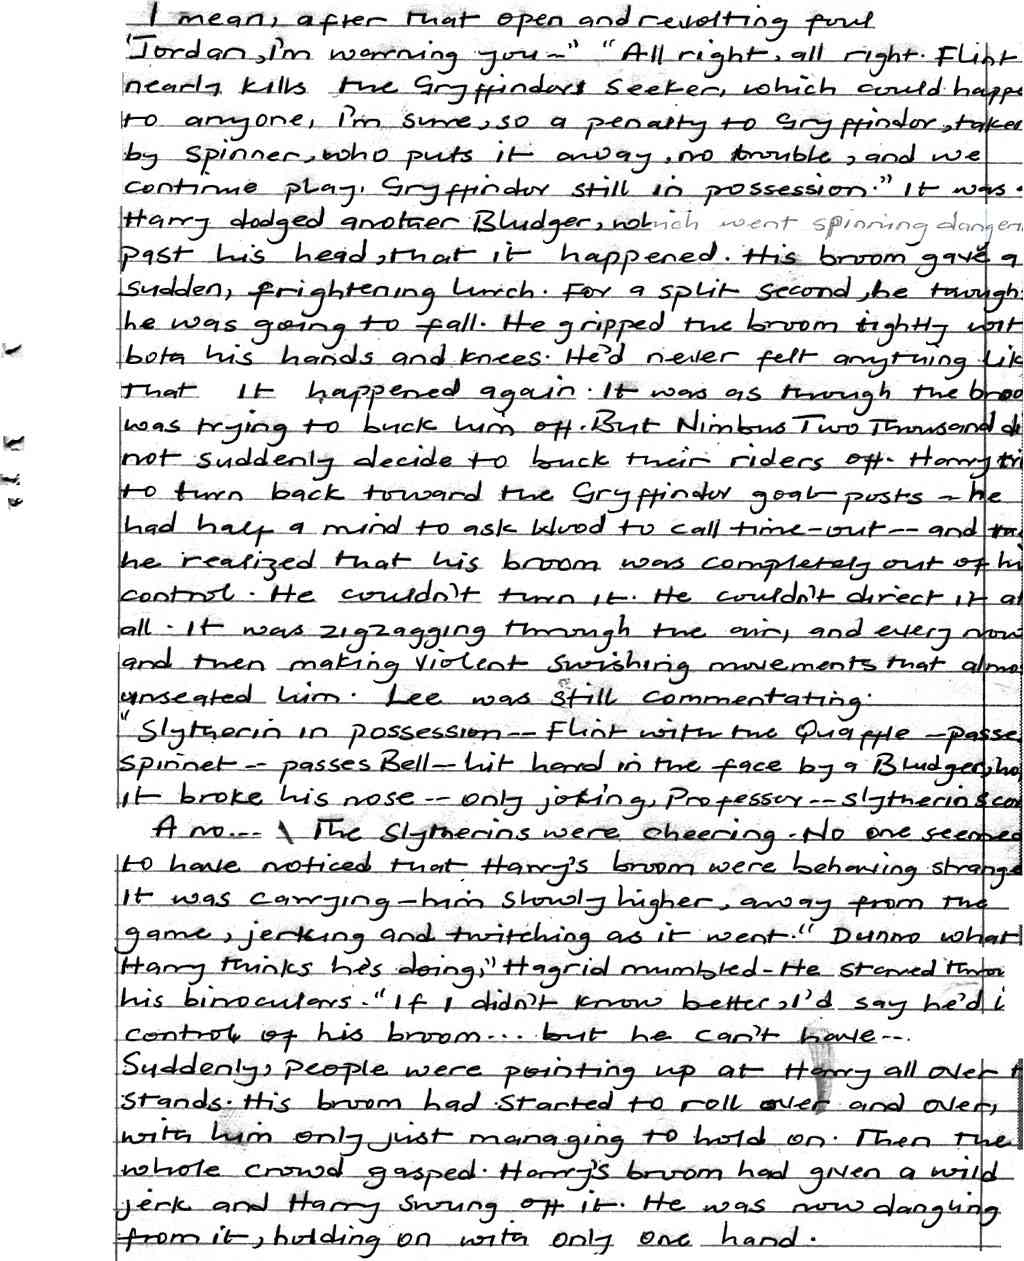 I mean, after that open and revolting foul
"Jordan, I'm warning you –" "All right, all right. Flint
nearly kills the Gryffindors Seeker, which could happe
to anyone, I'm sure, so a penalty to Gryffindor, taken
by Spinner, who puts it away, no trouble, and we
continue play, Gryffindor still in possession." It was.
Harry dodged another Bludger, which went spinning danger
past his head, that it happened. His broom gave a
sudden, frightening lurch. For a split second, he though
he was going to fall. He gripped the broom tightly wit
both his hands and knees. He'd never felt anything lik
that It happened again. It was as through the broo
was trying to buck him off. But Nimbus Two Thousand di
not suddenly decide to buck their riders off. Harry tri
to turn back toward the Gryffindor goal-posts – he
had half a mind to ask Wood to call time-out -- and the
he realized that his broom was completely out of hi
control. He couldn't turn it. He couldn't direct it at
all. It was zigzagging through the air, and every now
and then making violent swishing movements that almo
unseated him. Lee was still commentating.
"Slytherin in possession -- Flint with the Quaffle – passe
Spinnet -- passes Bell – hit hard in the face by a Bludger, ho
it broke his nose -- only joking, Professor -- Slytherin sco
A no... \ The Slytherins were cheering. No one seemed
to have noticed that Harry's broom were behaving strange
It was carrying – him slowly higher, away from the
game, jerking and twitching as it went." Dunno what
Harry thinks he's doing," Hagrid mumbled – He stared thro
his binoculars. "If I didn't know better, I'd say he'd i
control of his broom.... but he can't have ---.
Suddenly, people were pointing up at Harry all over t
stands. His broom had started to roll over and over,
with him only just managing to hold on. Then the
whole crowd gasped. Harry's broom had given a wild
jerk and Harry swung off it. He was now dangling
from it, holding on with only one hand.